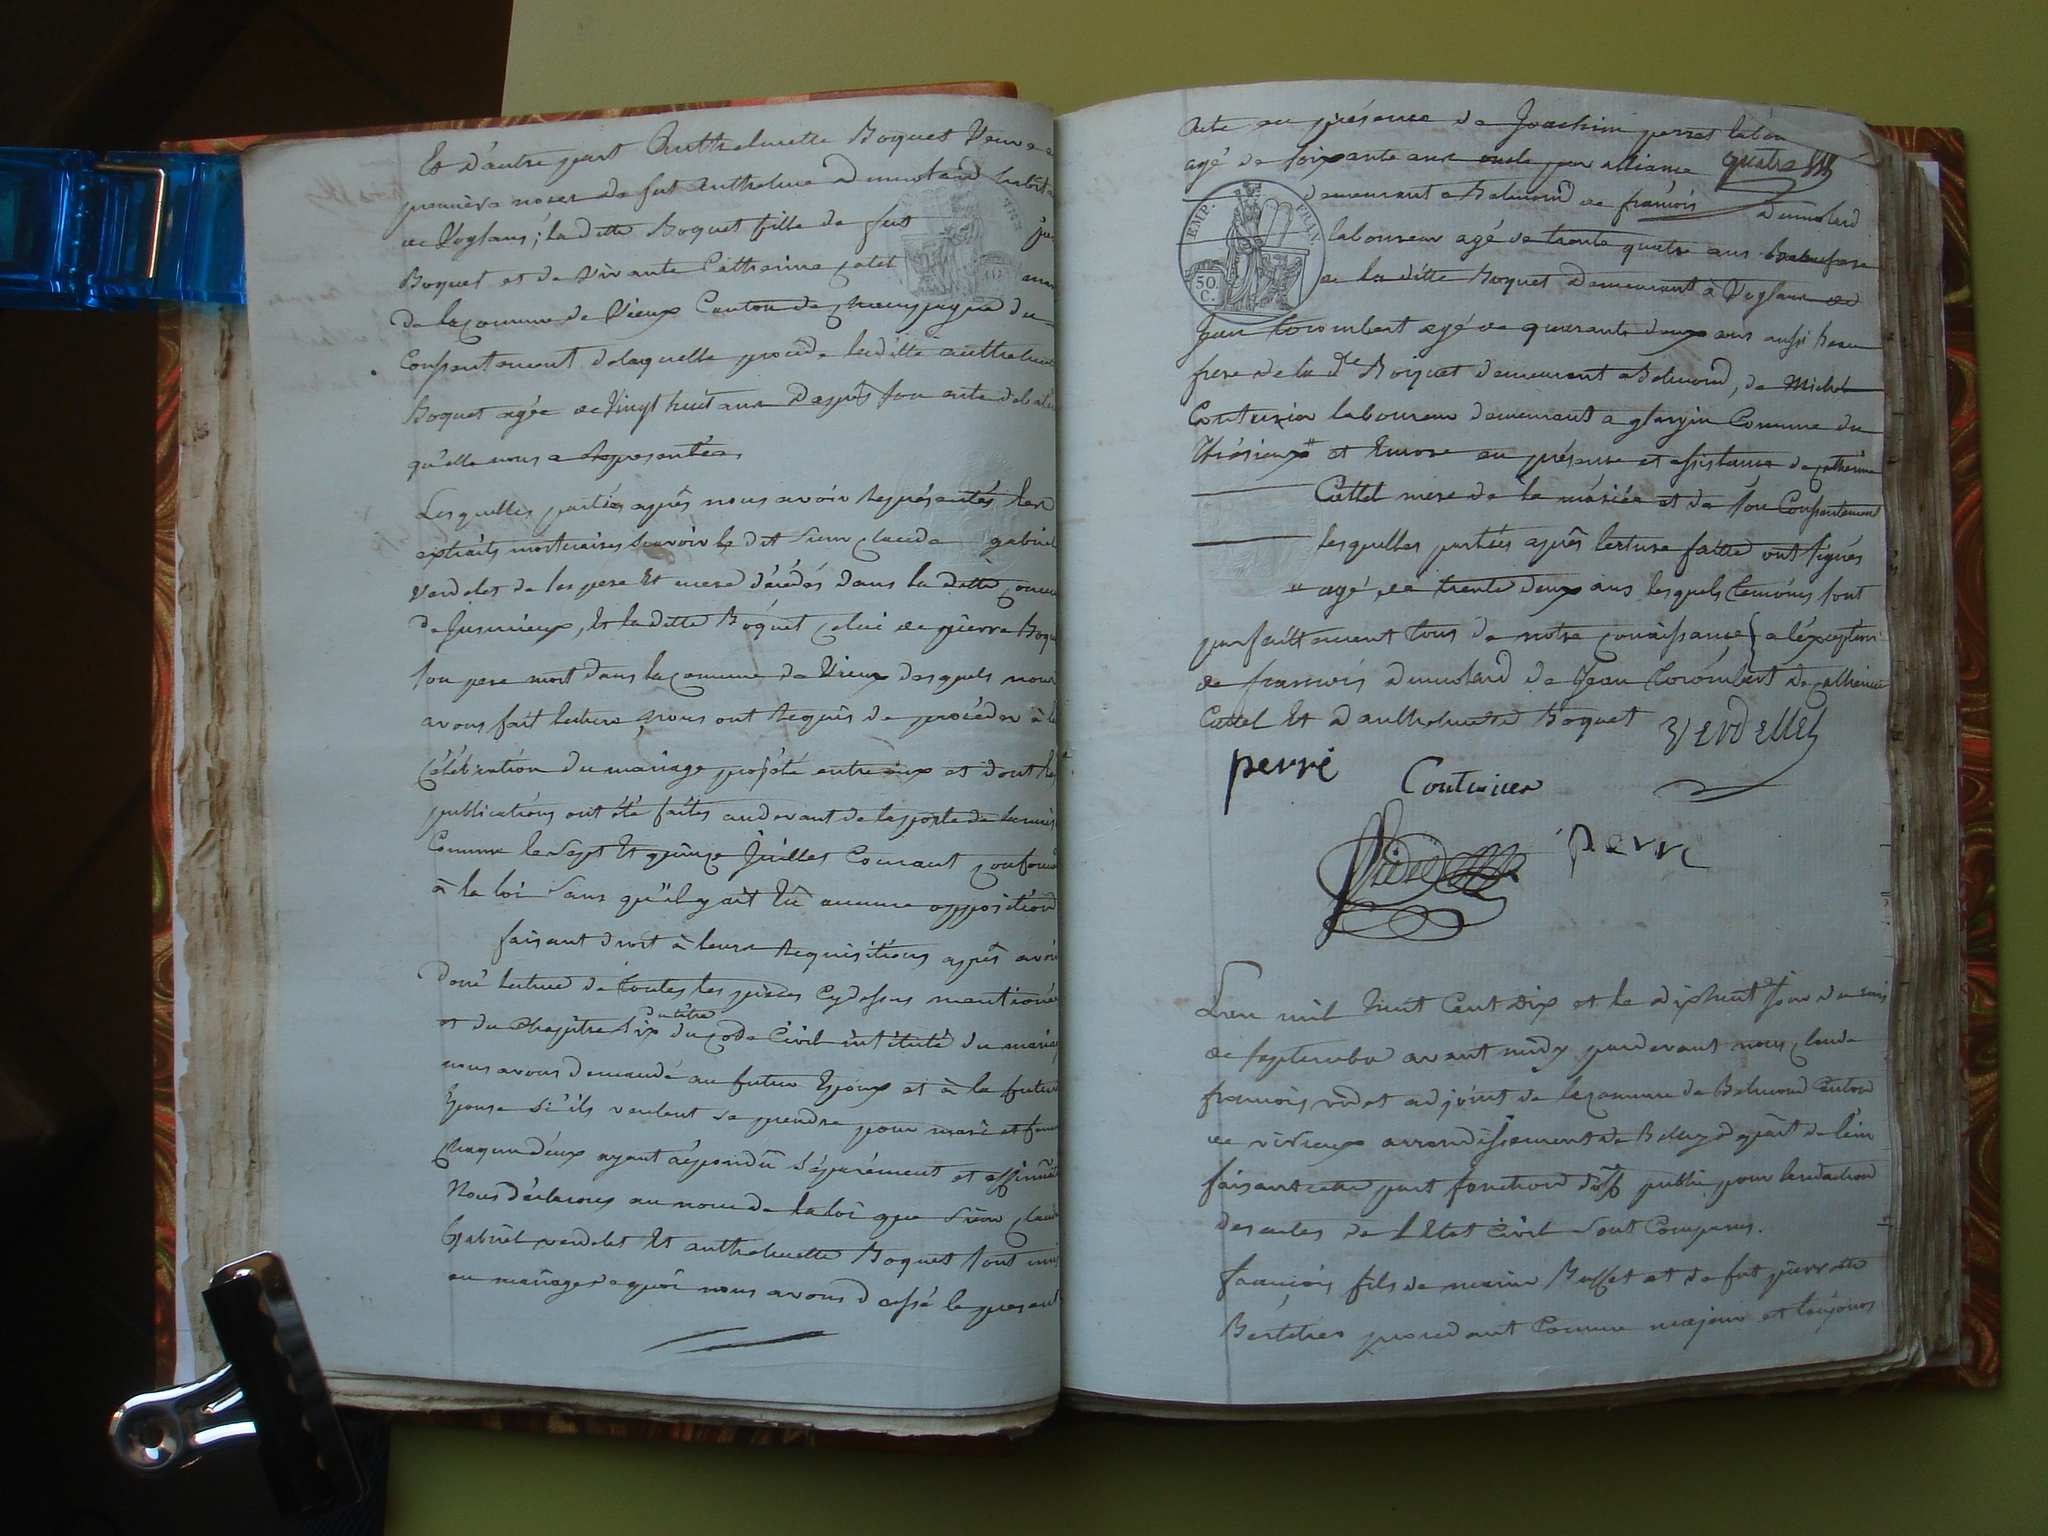 Et d'autre part Anthelmette Boquet Veuve
premiere noces de fut Anthelme Dumolard habit
de Voglans; la ditte Boquet fille de fut
Boquet et de vivante Catherine Cotet
de la Comune de Vieux Canton de Champagne du
Consentement de laquelle procede laditte anthelmette
Boquet agée de Vingt huit ans d'après son acte de
qu'elle nous a représentée.
Lesquelles parties après nous avoir représentés les
extraits mortuaires savoir le dit Sieur Claude gabriel
Verdelet de ses pere Et mere décédés dans la ditte Comune
de Et la ditte Boquet celui de pierre Boqu
son pere mort dans la comune de Vieux desquels nous
avons fait lecture, nous ont requis de procéder à la
Célébration du mariage projeté entre eux et dont les
publications ont été faites audevant de la porte de la
Comune le Sept Et quinze Juillet Courant conform
à la loi sans qu'il y ait Eû aucune opposition
faisant droit à leurs requisitions après avoir
doné lecture de toutes les pièces cydessus mentionés
et du chapitre Six du titre du code Civil intitulé du mariag
nous avons demandé au futur Epoux et à la futur
Epouse si'ils veulent se prendre pour mari et fem
chaqun d'eux ayant répondû séparément et affirmat
Nous déclarons au nom de la loi que Sieur Claude
Gabriel verdelet Et anthelmette Boquet sont unis
en mariage de quoi nous avons dressé le present
Acte en présence de Joachim perret
agé de soixante ans oncle par alliance quatre
demeurant a Belmond de francois Dumolard
EMP. FRAN.
50 C.
laboureur agé de trente quatre ans Beaufrere
de la ditte Boquet Demeurant à Voglans de
Jean Corombert agé de quarante deux ans aussi beau
frere de la dte Boquet demeurant a Belmond, de Michel
Couturier laboureur demeurant a Comune du
et Encore en présence et assistance de catherine
Cuttet mere de la mariée et de son Consentement
lesquelles parties après lecture faitte ont signés
" agé de trente deux ans lesquels témoins sont
parfaittement tous de notre conaissance a l'exception
de francois Dumolard de Jean Corombert de catherine
Cuttet Et d'anthelmette Boquet verdellet
perré Couturier
perre
L'en mil huit Cent dix et le dixhuit jour du mois
de septembre avant midy pardevant nous claude
francois vudet adjoint de la comune de Belmond Canton
de virieux arrondissement de Belley dpart de l'ain
faisant cette part fonction d'off public pour la rédaction
des actes de l'Etat Civil sont Comparus.
francois fils de marin Buffet et de fut pierrette
procedant Comme majeur et toujours